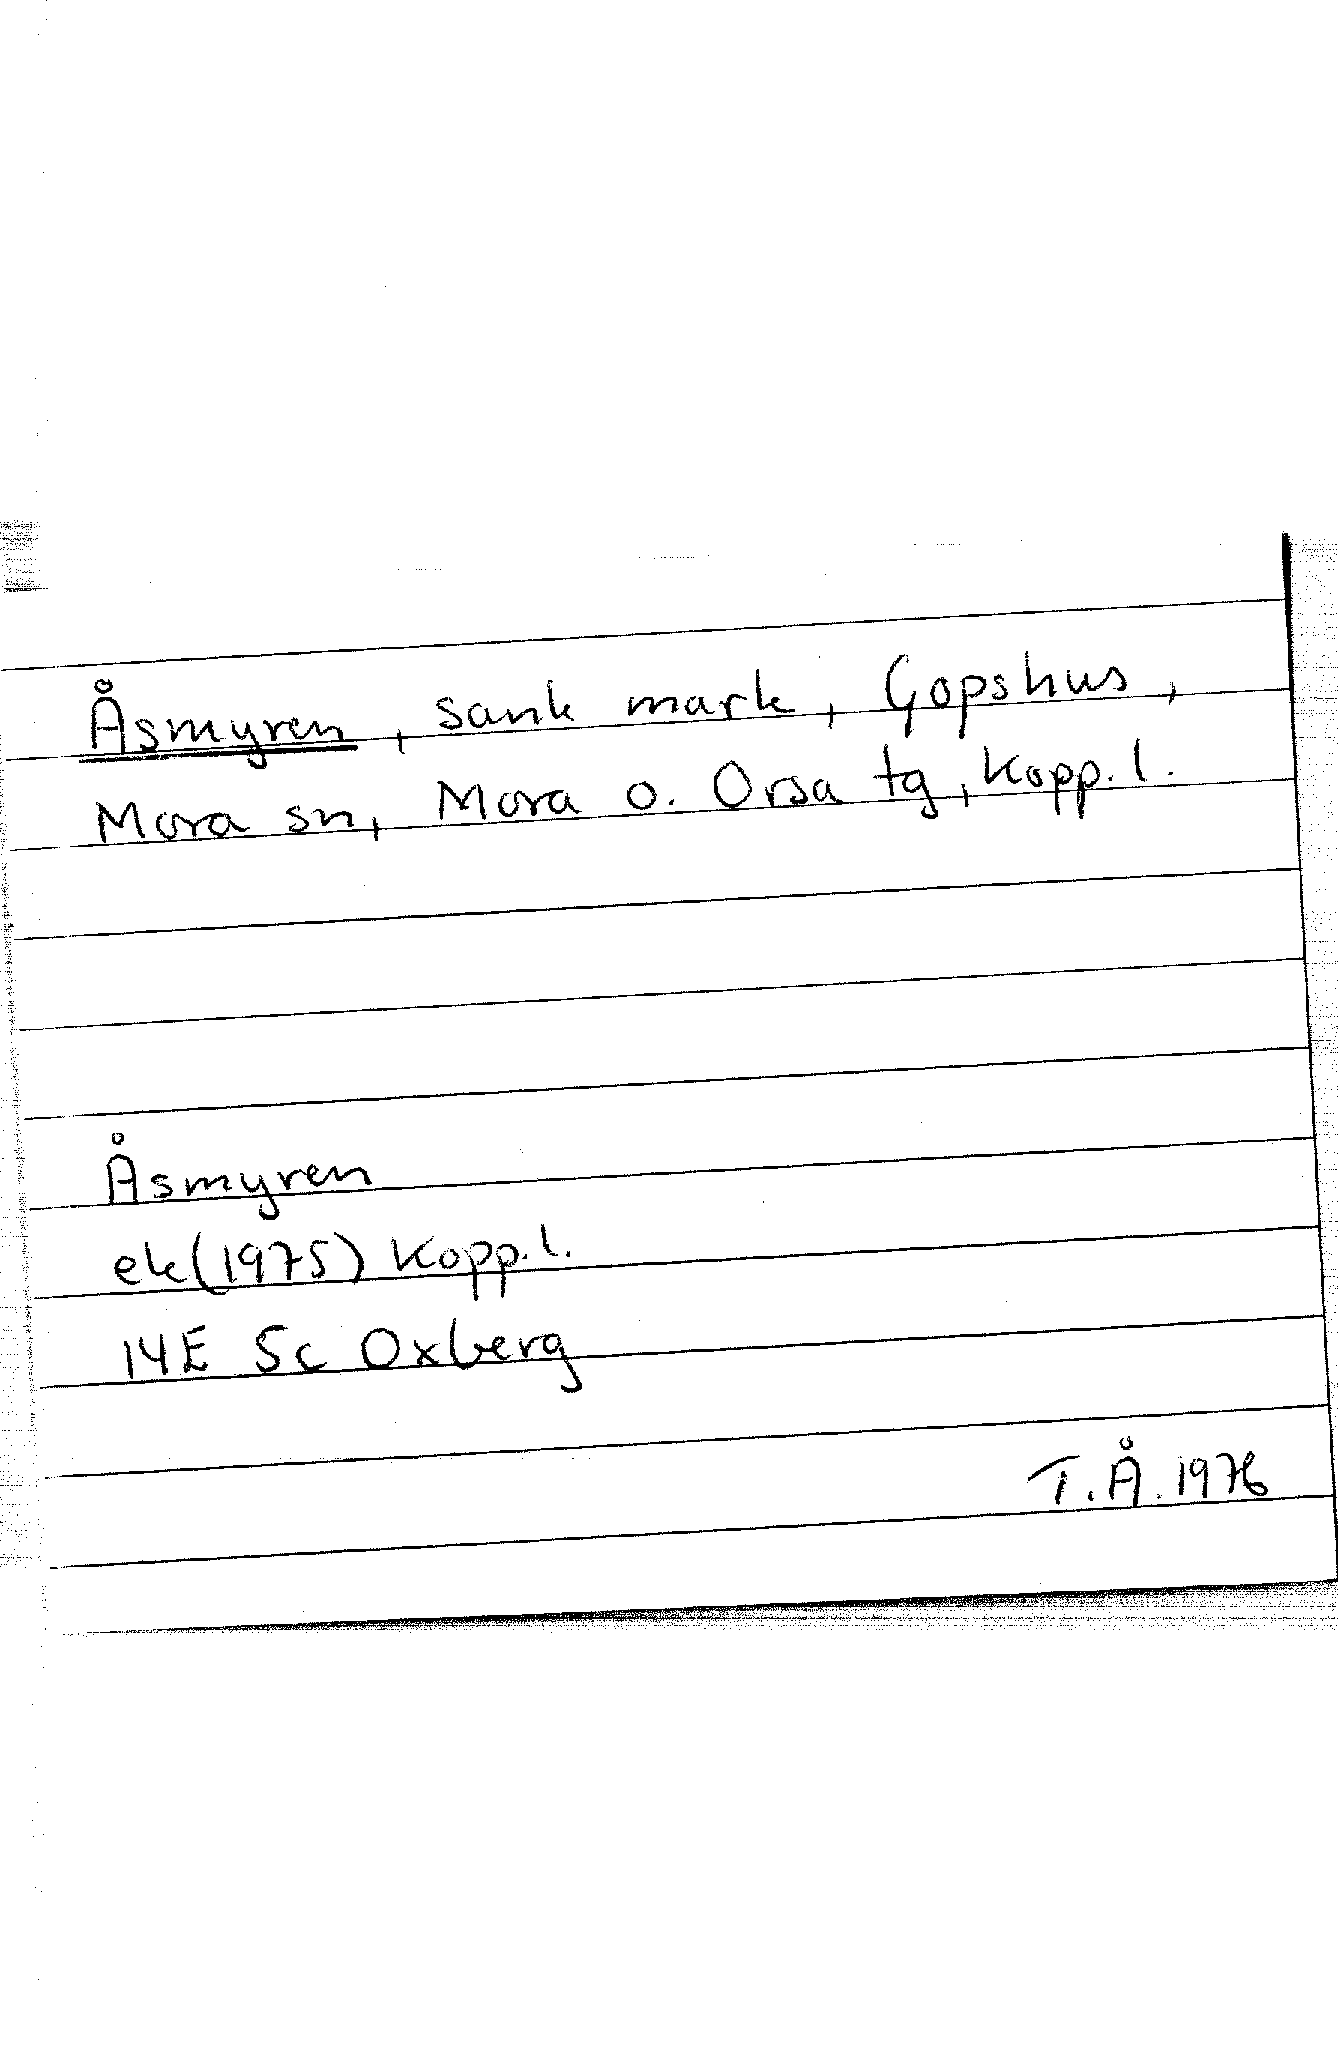 Åsmyren, sank mark, Gopshus,
Mora sn, Mora o. Orsa tg, Kopp. l.
Åsmyren
ek (1975) Kopp. l.
14E 5c Oxberg
T.Å. 1976